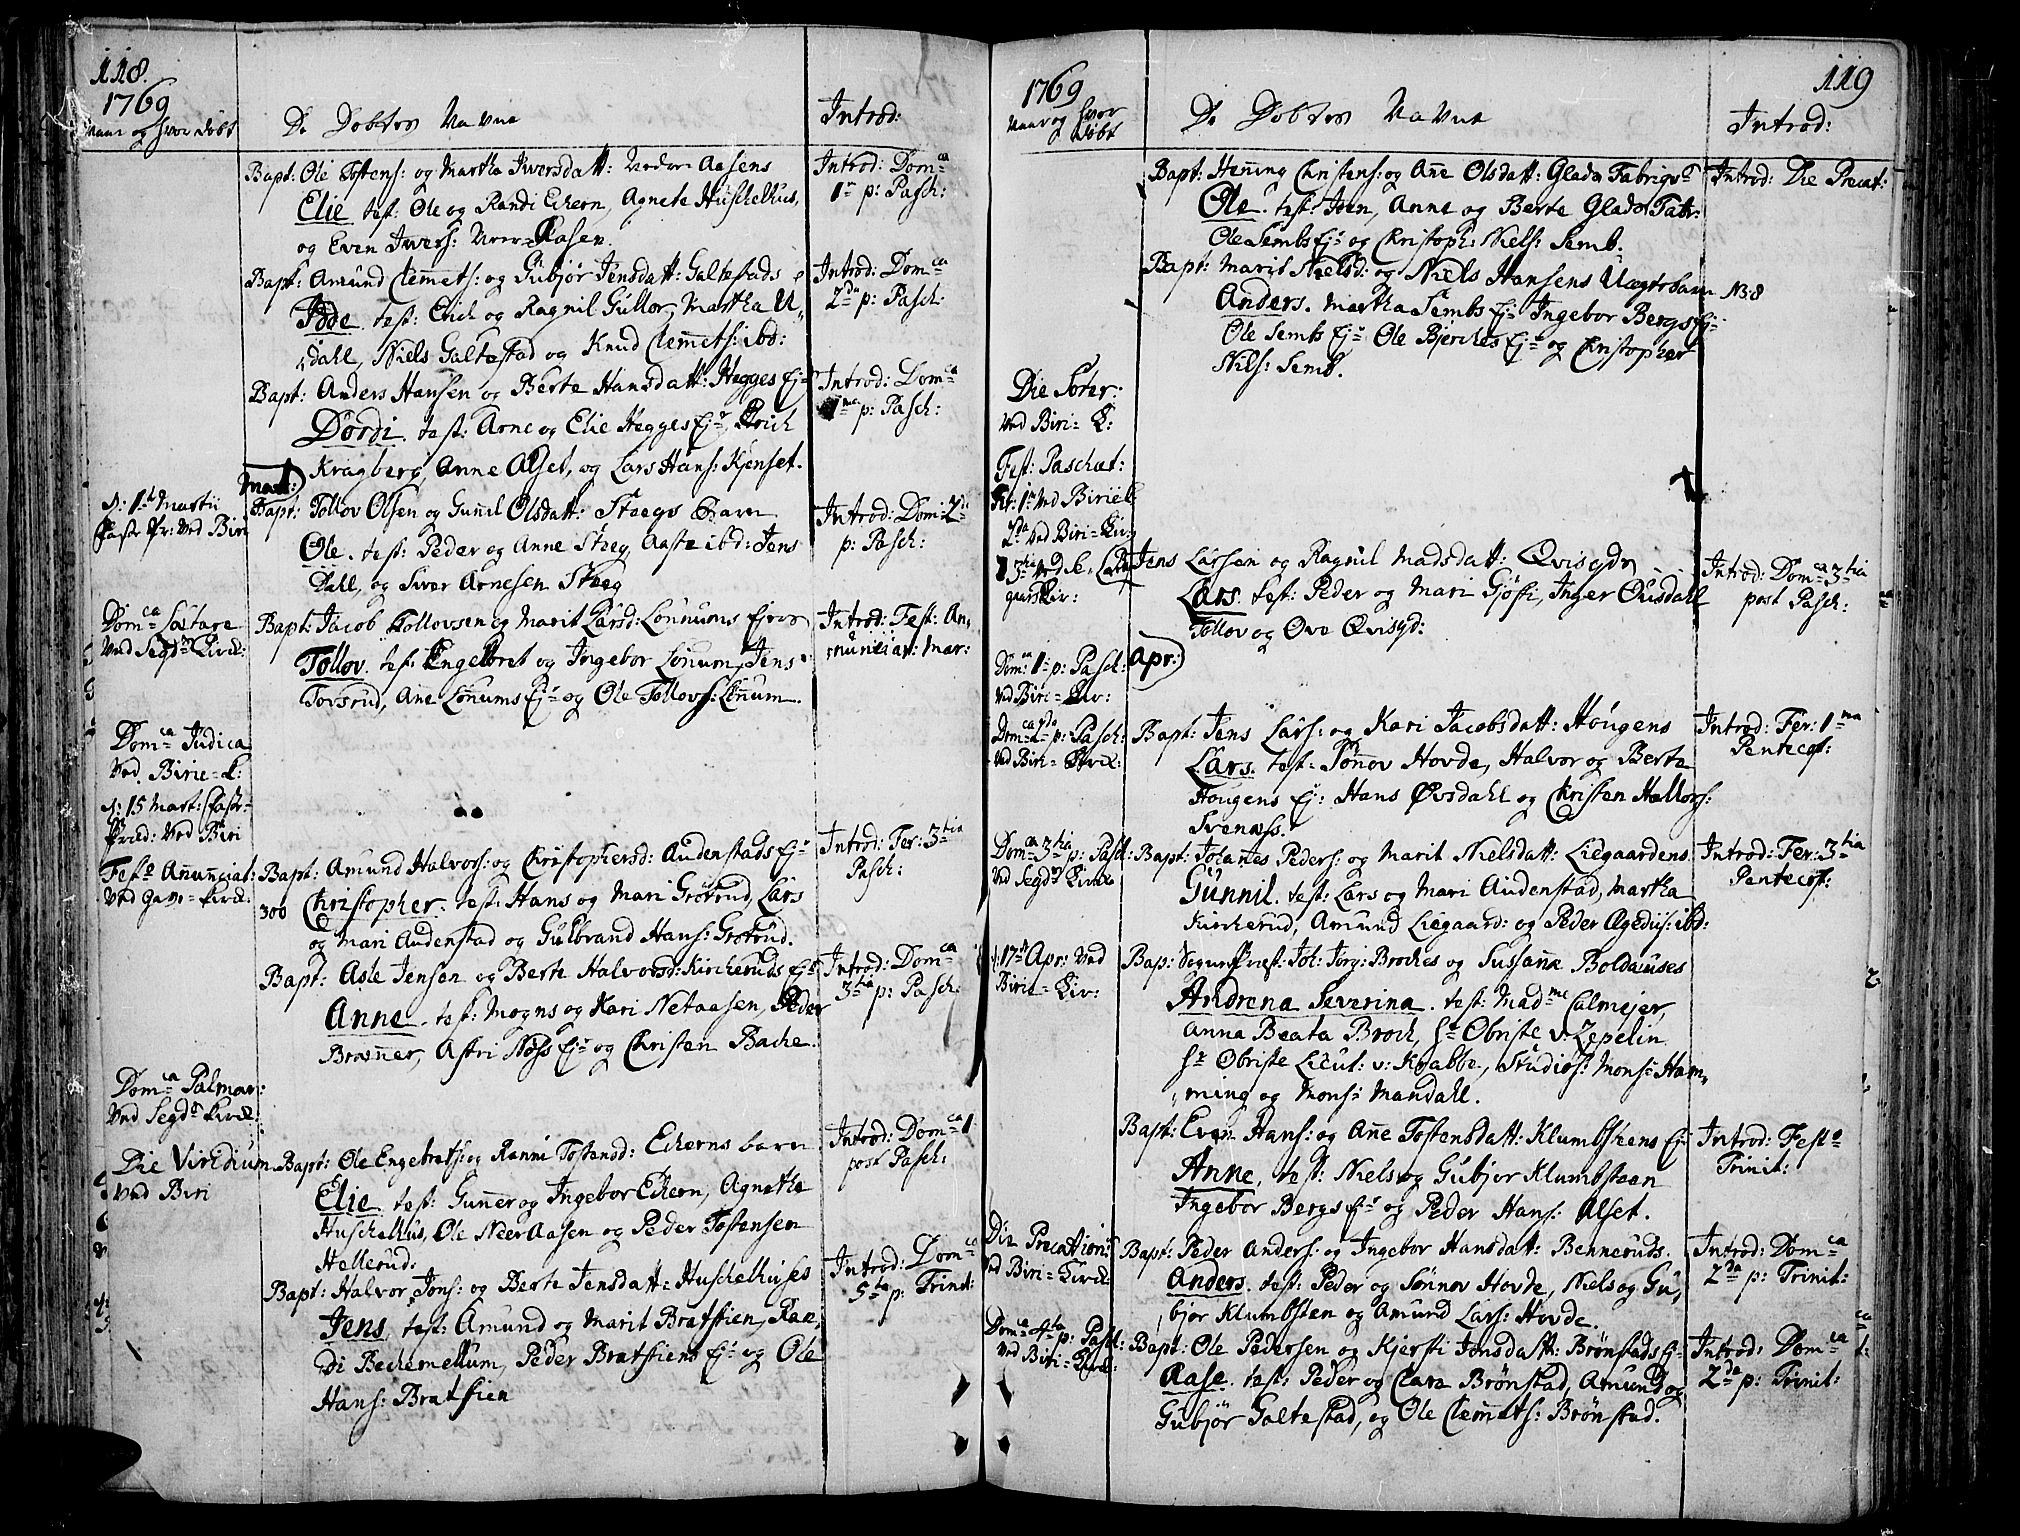 118.
1769
Naar og hvor døbt
De Døbtes Navne
Introd:
Bapt: Ole Tostens: og Martha Iversdatt: Nedre Aasens
Elie. test: Ole og Randi Eckern, Agnete Huschelhus,
og Even Ivers: Aasen.
Introd: Domca
1ma p: Pasch:
Bapt: Amund Clemets: og Gubjør Jensdatt: Galtestads
Idde. test: Erich og Ragnil Gullor, Martha U,,
,,dahl, Niels Galtestad og Knud Clemets: ibd:
Introd: Domca
2da p: Pasch:
Bapt: Anders Hansen og Berte Hansdatt: Hegges Ej:
Dordi. test: Arne og Elie Hegges Ej: Erich
Kragberg, Anne Alset, og Lars Hans: Kjenset.
Introd: Domca
1ma p: Pasch:
Mart:
d: 1t Martii
Faste Pr: Ved Biri
Bapt: Tollov Olsen og Gunil Olsdatt: Stoegs Barn
Ole. test: Peder og Anne Stoeg, Aaste ibd: Jens
Dahl, og Siver Arnesen Stoeg
Introd: Dom: 2da
p: Pasch:
Domca Lætare
Ved Segd: Kirck:
Bapt: Jacob Tollovsen og Marit Larsd: Lønnums Ejer
Tollov. test: Engebret og Ingebor Lønum, Jens
Tovsrud, Ane Lønums Ej: og Ole Tollovs: Lønum.
Introd: Fest: An,
,,nunciat: Mar:
Domca Judica
Ved Birie=K:
d: 15 Mart: Faste
Præd: Ved Biri
Festo Anunciat:
Ved Kirck:
300
Bapt: Amund Halvors: og Christophersd: Audenstads Ej:
Christopher. test: Hans og Mari Grøtrud, Lars
og Mari Audenstad og Gulbrand Hans: Grøtrud.
Introd: Fer: 3tia
Pasch:
Bapt: Asle Jensen og Berte Halvorsd: Kirckeruds Ej:
Anne. test: Mogns og Kari Netaasen, Peder
Brænner, Astri Nøss Ej: og Christen Bache.
Introd: Domca
3tia p: Pasch:
Domca Palmar:
Ved Segd: Kirck:
Die Viridium
Ved Biri
Bapt: Ole Engebrets: og Ranni Tostensd: Eckerns barn
Elie test: Gunner og Ingebor Eckern, Agnethe
Huschelhus, Ole NeerAasen og Peder Tostensen
Hellerud.
Introd: Domca 1
post Pasch:
Bapt: Halvor Jons: og Berte Jensdatt: Huschelhuses
Jens. test: Amund og Marit Bratstien, Ran,
di Bechemellum, Peder Bratstiens Ej: og Ole
Hans: Bratstien
Introd: Domca
5ta p: Trinit:
119
1769
Naar og hvor
døbt
De Døbtes Navne
Introd:
Bapt: Henning Christens: og Ane Olsdatt: Glads Fabriqs
Ole. test: Iven, Anne og Berte Glads Fabr:
Ole Sembs Ej: og Christoph: Niels: Semb.
Introd: Die Precat:
Bapt: Marit Nielsd: og Niels Hansens Uægtebarn
Anders. Martha Sembs Ej: Ingebor Bergs Ej:
Ole Sembs Ej: Ole Bjerckes Ej: og Christopher
Niels: Semb.
N:8
Die
Ved Biri=K:
Fest: Paschat:
Fer: 1ma Ved Birie
2da Ved Biri=Kir:
3tia Ved
Kir:
Jens Larsen og Ragnil Madsdatt: Qvisgdr
Lars. test: Peder og Mari Gjøsti, Inger Øusdahl
Tollov og Ove Qvisgd:
Introd: Domca 3tia
post Pasch:
Apr:
Dom: 1ma p: Pasch:
Ved Biri=Kir:
Domca 2da p: Pasch:
Ved Biri=Kirck:
Bapt: Jens Lars: og Kari Jacobsdatt: Hougens
Lars. test: Sønnov Hovde, Halvor og Berte
Hougens Ej: Hans Øvsdahl og Christen Hallors:
Svenæs.
Introd: Fer: 1ma
Pentecost:
Domca 3tia p: Pasch:
Ved Segd: Kirck
Bapt: Johannes Peders: og Marit Nielsdatt: Liegaardens
Gunnil. test: Lars og Mari Audenstad, Martha
Kirckerud, Amund Liegaard: og Peder Agedius: ibd:
Introd: Fer: 3tia
Pentecost:
d: 17de Apr: Ved
Birie=Kir:
Bap: Sogne Præst: Joh: Jørg: Broches og Susanne Boldeuses
Andrena Severina. test: Madme Calmejer,
Anna Beata Broch, Hr Obriste v: Zepelin
Hr Obriste Lieut: v: Krabbe, Studios: Mons: Ham,,
,,ming og Mons: Mandahl.
Bapt: Even Hans: og Ane Tostensdatt: Klumbstens Ej:
Anne, test: Niels og Gubjor Klumbsteen
Ingebor Bergs Ej: og Peder Hans: Alset.
Introd: Festo
Trinit:
Die Precation:
Ved Biri=Kirck:
Bapt: Peder Anders: og Ingebor Hansdatt: Benneruds.
Anders. test: Peder og Sønnov Hovde, Niels og Gu,
,,bjor Klumbsten og Amund Lars: Hovde.
Introd: Domca
2da p: Trinit:
Domca 4ta p: Pasch:
Ved Biri=Kirck:
Bapt: Ole Pedersen og Kjersti Jonsdatt: Brønstads Ej:
Aase. test: Peder og Clara Brønstad, Amund og
Gubjør Galtestad, og Ole Clemets: Brønstad.
Introd: Domca
2da p: Trinit: